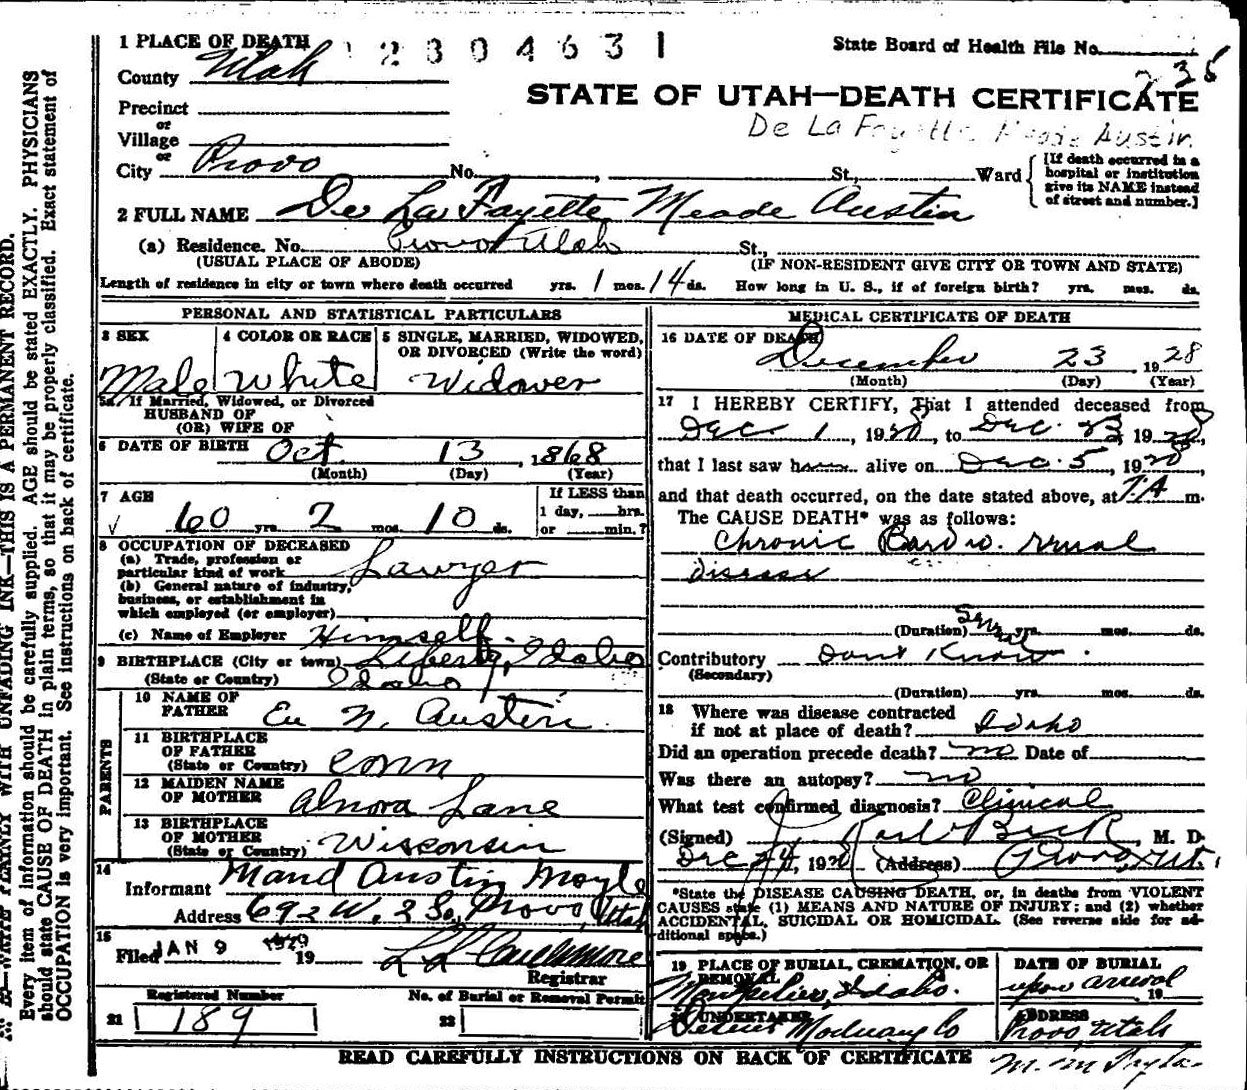 1 PLACE OF DEATH
2304631
State Board of Health File No.
235
County Utah
STATE OF UTAH—DEATH CERTIFICATE
Precinct
De La Fayette Meade Austin
or
Village
or
City Provo No. , St., Ward
[If death occurred in a hospital or institution give its NAME instead of street and number.]
2 FULL NAME De La Fayette Meade Austin
(a) Residence. No. Provo Utah St.,
(USUAL PLACE OF ABODE) (IF NON-RESIDENT GIVE CITY OR TOWN AND STATE)
Length of residence in city or town where death occurred yrs. 1 mos. 14 ds. How long in U. S., if of foreign birth? yrs. mos. ds.
PERSONAL AND STATISTICAL PARTICULARS
3 SEX
Male
4 COLOR OR RACE
White
5 SINGLE, MARRIED, WIDOWED,
OR DIVORCED (Write the word)
Widower
5a. If Married, Widowed, or Divorced
HUSBAND OF
(OR) WIFE OF
6 DATE OF BIRTH Oct. 13, 1868
(Month) (Day) (Year)
7 AGE
60 yrs. 2 mos. 10 ds.
If LESS than
1 day, hrs.
or min.?
8 OCCUPATION OF DECEASED
(a) Trade, profession or
particular kind of work Lawyer
(b) General nature of industry,
business, or establishment in
which employed (or employer)
(c) Name of Employer Himself.
9 BIRTHPLACE (City or town) Liberty, Idaho
(State or Country) Idaho
PARENTS
10 NAME OF
FATHER Eu N. Austin
11 BIRTHPLACE
OF FATHER
(State or Country) Conn
12 MAIDEN NAME
OF MOTHER Alnora Lane
13 BIRTHPLACE
OF MOTHER
(State or Country) Wisconsin
14
Informant Maud Austin Moyle
Address 692 W. 2 So. Provo, Utah
15
Filed JAN 9 1929 19
Registrar
Registered Number
21 189
No. of Burial or Removal Permit
22
MEDICAL CERTIFICATE OF DEATH
16 DATE OF DEATH
December 23 1928
(Month) (Day) (Year)
17 I HEREBY CERTIFY, That I attended deceased from
Dec 1, 1928, to Dec. 23, 1928,
that I last saw h alive on Dec. 5, 1928,
and that death occurred, on the date stated above, at 7 A m.
The CAUSE DEATH* was as follows:
Chronic Cardio. renal
disease
(Duration) Several yrs. mos. ds.
Contributory Dont Know.
(Secondary)
(Duration) yrs. mos. ds.
18 Where was disease contracted
if not at place of death? Idaho
Did an operation precede death? no Date of
Was there an autopsy? no
What test confirmed diagnosis? Clinical
(Signed) J. Karl Beck, M. D.
Dec 24, 1928 (Address) Provo, Ut.
*State the DISEASE CAUSING DEATH, or, in deaths from VIOLENT
CAUSES state (1) MEANS AND NATURE OF INJURY; and (2) whether
ACCIDENTAL, SUICIDAL OR HOMICIDAL. (See reverse side for ad-
ditional space.)
19 PLACE OF BURIAL, CREMATION, OR
REMOVAL
Montpelier, Idaho.
DATE OF BURIAL
upon arrival 19
20 UNDERTAKER
ADDRESS
Provo Utah
READ CAREFULLY INSTRUCTIONS ON BACK OF CERTIFICATE
N. B.—WRITE PLAINLY WITH UNFADING INK—THIS IS A PERMANENT RECORD.
Every item of information should be carefully supplied. AGE should be stated EXACTLY. PHYSICIANS
should state CAUSE OF DEATH in plain terms, so that it may be properly classified. Exact statement of
OCCUPATION is very important. See instructions on back of certificate.